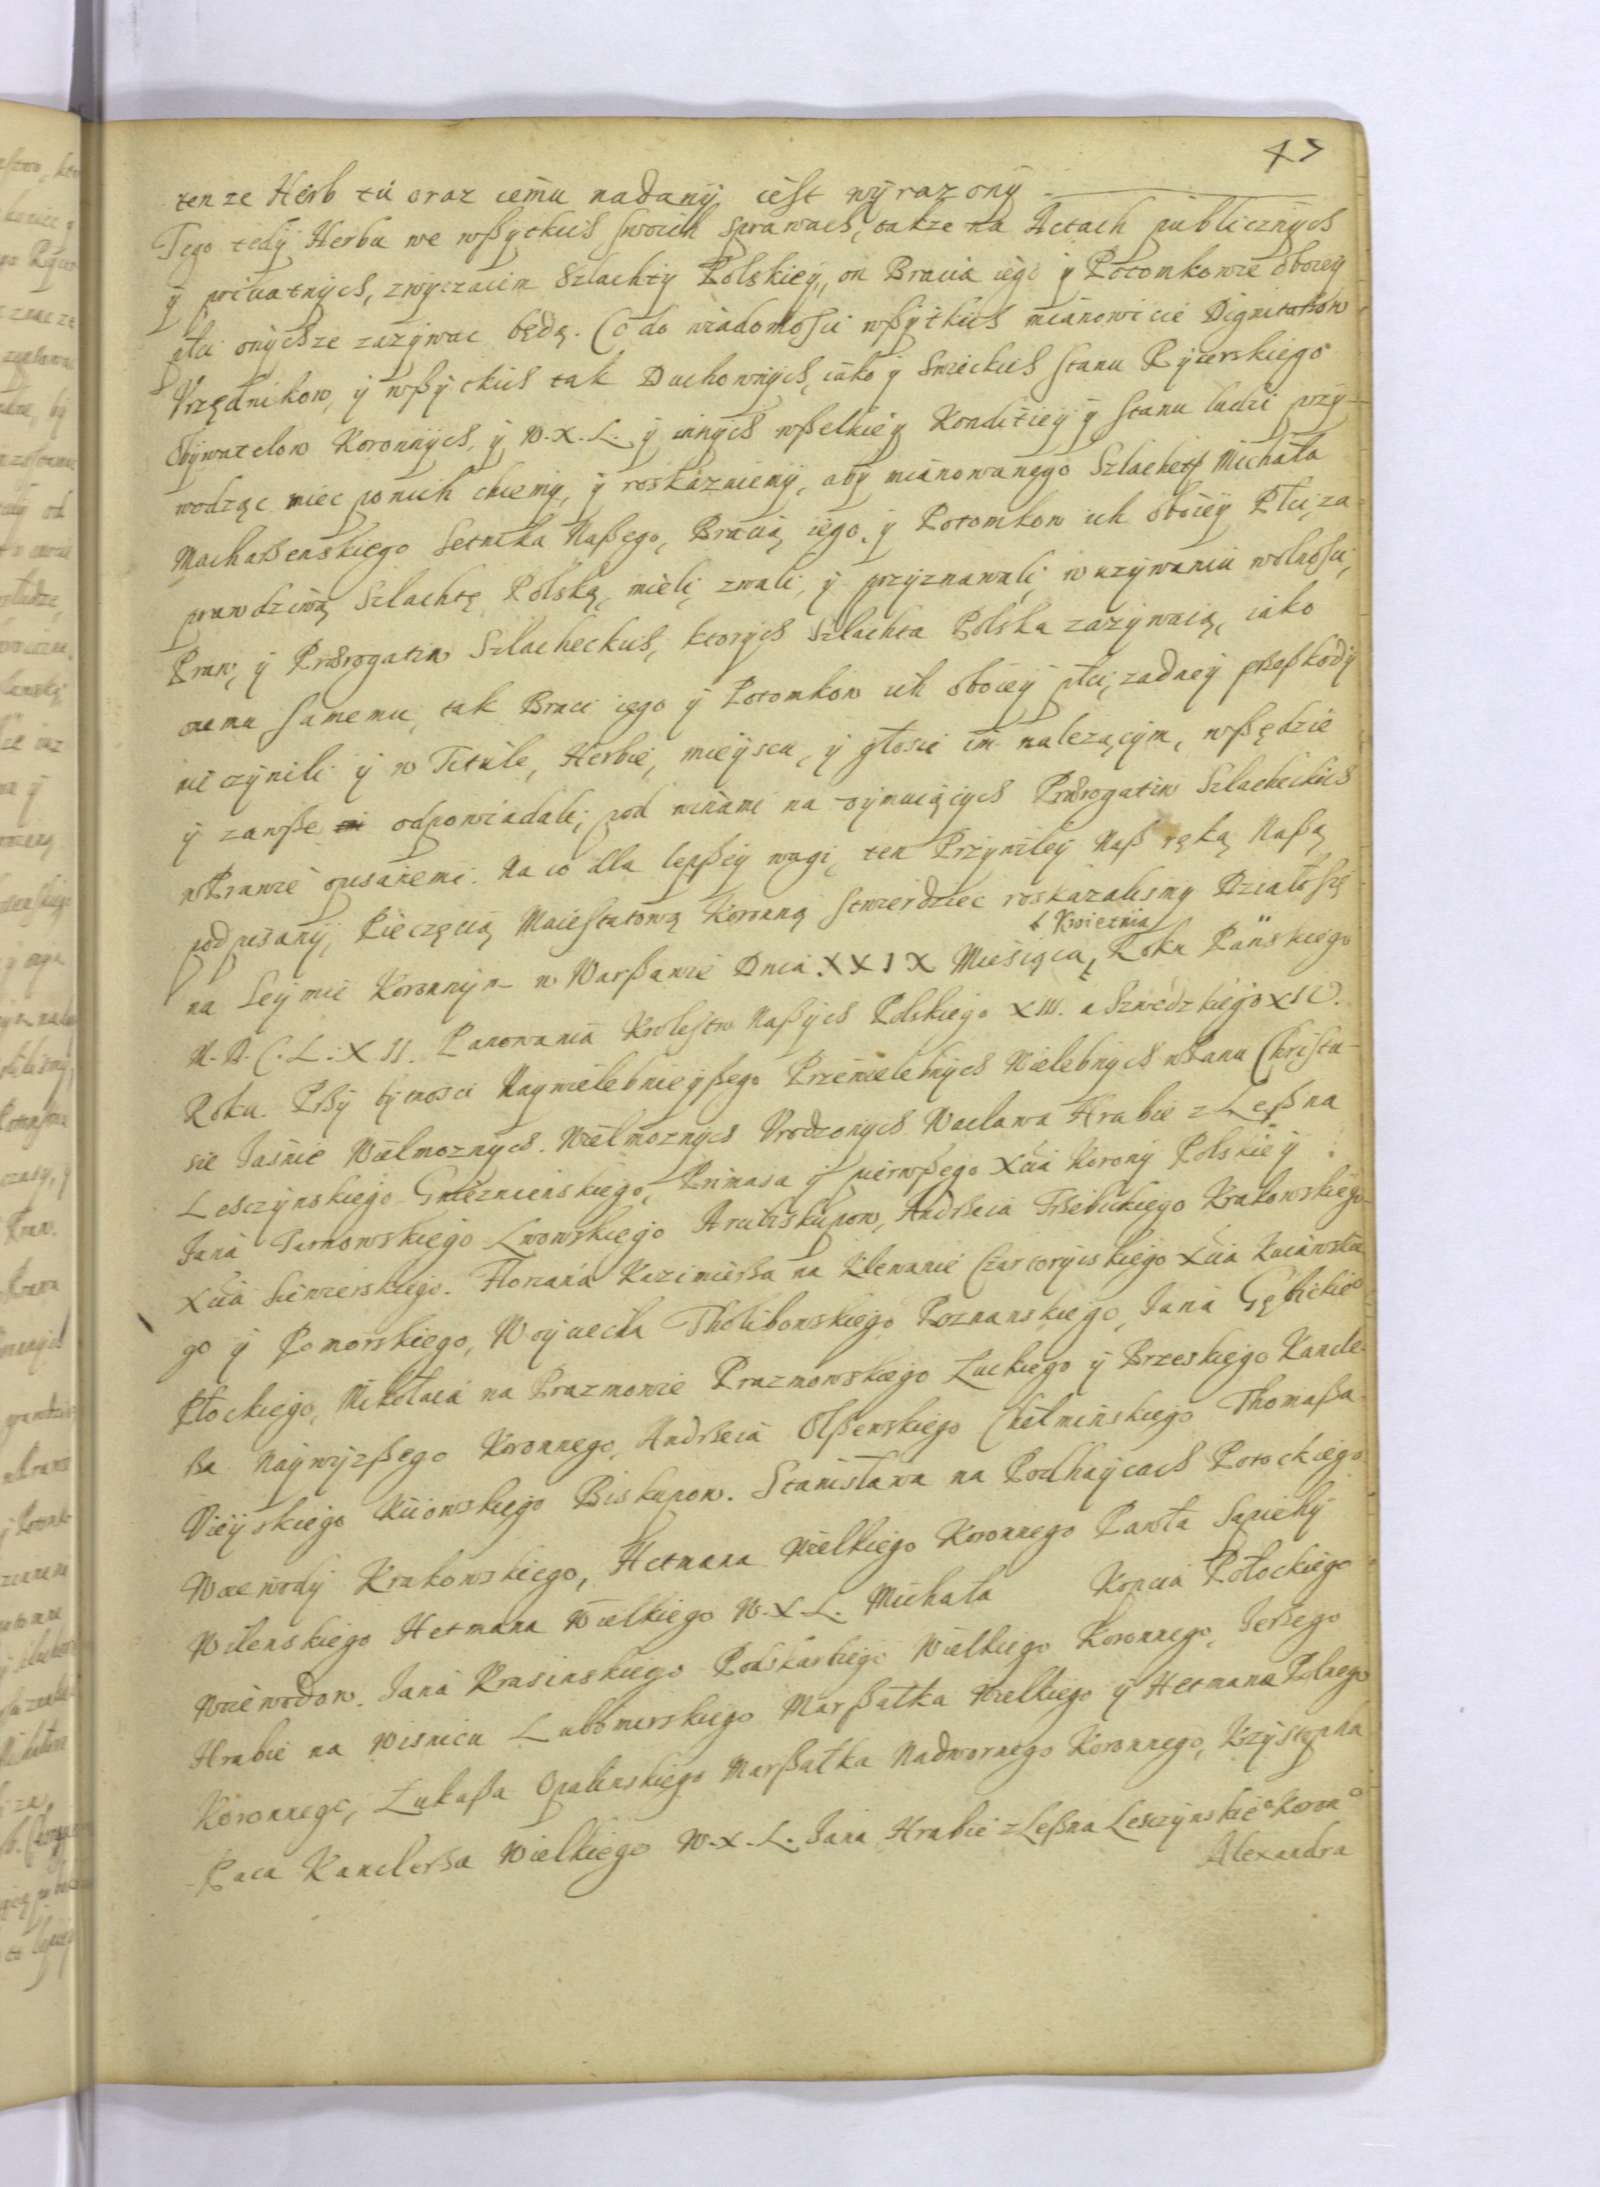 47
tenze Herb tu oraz iemu nadany iest wyrazony
Tego tedy Herbu we wßytkich swoich sprawach, takze na Actach publicznych
y priuatnych, zwyczaiem Szlachty Polskiey, on Bracia iego y Potomkowie oboiey
płci onychze zazywac będą. Co do wiadomosci wßytkich mianowicie Dignitarzow
Vrzędnikow, y wßyckich tak Duchownych, iako y Swieckich Stanu Rycerskiego
Obywatelow Koronnych, y W. X. L. y innych wßelkiey Konditiey y Stanu ludzi przy-
wodząc miec po nich chcemy, y roskazuiemy, aby mianowanego Szlachet Michała
Machaßenskiego Setnika Naßego, Bracią iego, y Potomkow ich oboiey Płci, za
prawdziwą Szlachtę Polską, mieli, zwali, y przyznawali, w uzywaniu wolnosci,
Praw, y Prærogatiw Szlacheckich, ktorych Szlachta Polska zazywaią, iako
onemu samemu, tak Braci iego y Potomkow ich oboiey płci, zadney przeßkody
nie czynili y w Titule, Herbie, mieyscu, y głosie im nalezącym, wßędzie
y zawße odpowiadali, pod winami na uymuiących Prærogatiw Szlacheckich
w Prawie opisanemi. Na co dla lepßey wagi, ten Przywiley Naß ręką Naßą
podpisany, Pieczęcią Maiestatową Koronną stwierdzic roskazalismy Działosię
na Seymie Koronnym w Warßawie Dnia XXIX Miesiąca Kwietnia Roku Pańskiego
M. D. C. L: X II. Panowania Krolestw Naßych Polskiego XIII. a Szwedzkiego XIV.
Roku. Przy bytnosci Naywielebnieyßego Przewielebnych Wielebnych w Panu Christu-
sie Jasnie Wielmoznych. Wielmoznych Vrodzonych Wacława Hrabie z Leßna
Lesczynskiego Gnieznienskiego, Primasa y pierwßego Xcia Korony Polskiey
Jana Tarnowskiego Lwowskiego Arcibiskupow, Andrzeia Trzebickiego Krakowskiego
Xcia Siewierskiego. Floriana Kazimierza na Klewanie Czartoryiskiego Xcia Kuiawskie
go y Pomorskiego, Woyciecha Tholibowskiego Poznanskiego, Jana Gębickieo
Płockiego, Mikołaia na Prazmowie Prazmowskiego Łuckiego y Brzeskiego Kancle-
rza Naywyzßego Koronnego, Andrzeia Olßewskiego Chełminskiego Thomaßa
Vieyskiego Kiiowskiego Biskupow. Stanisława na Podhaycach Potockiego
Woiewody Krakowskiego, Hetmana Wielkiego Koronnego Pawła Sapiehy
Wilenskiego Hetmana Wielkiego W. X. L. Michała Kopcia Połockiego
Woiewodow. Jana Krasinskiego Podskarbiego Wielkiego Koronnego, Jerzego
Hrabie na Wisniczu Lubomirskiego Marßałka Wielkiego y Hetmana Polnego
Koronnego, Łukaßa Opalinskiego Marßałka Nadwornego Koronnego, Krzysztopha
Paca Kanclerza Wielkiego W. X. L. Jana Hrabie z Leßna Lesczynskieo Korono
Alexandra